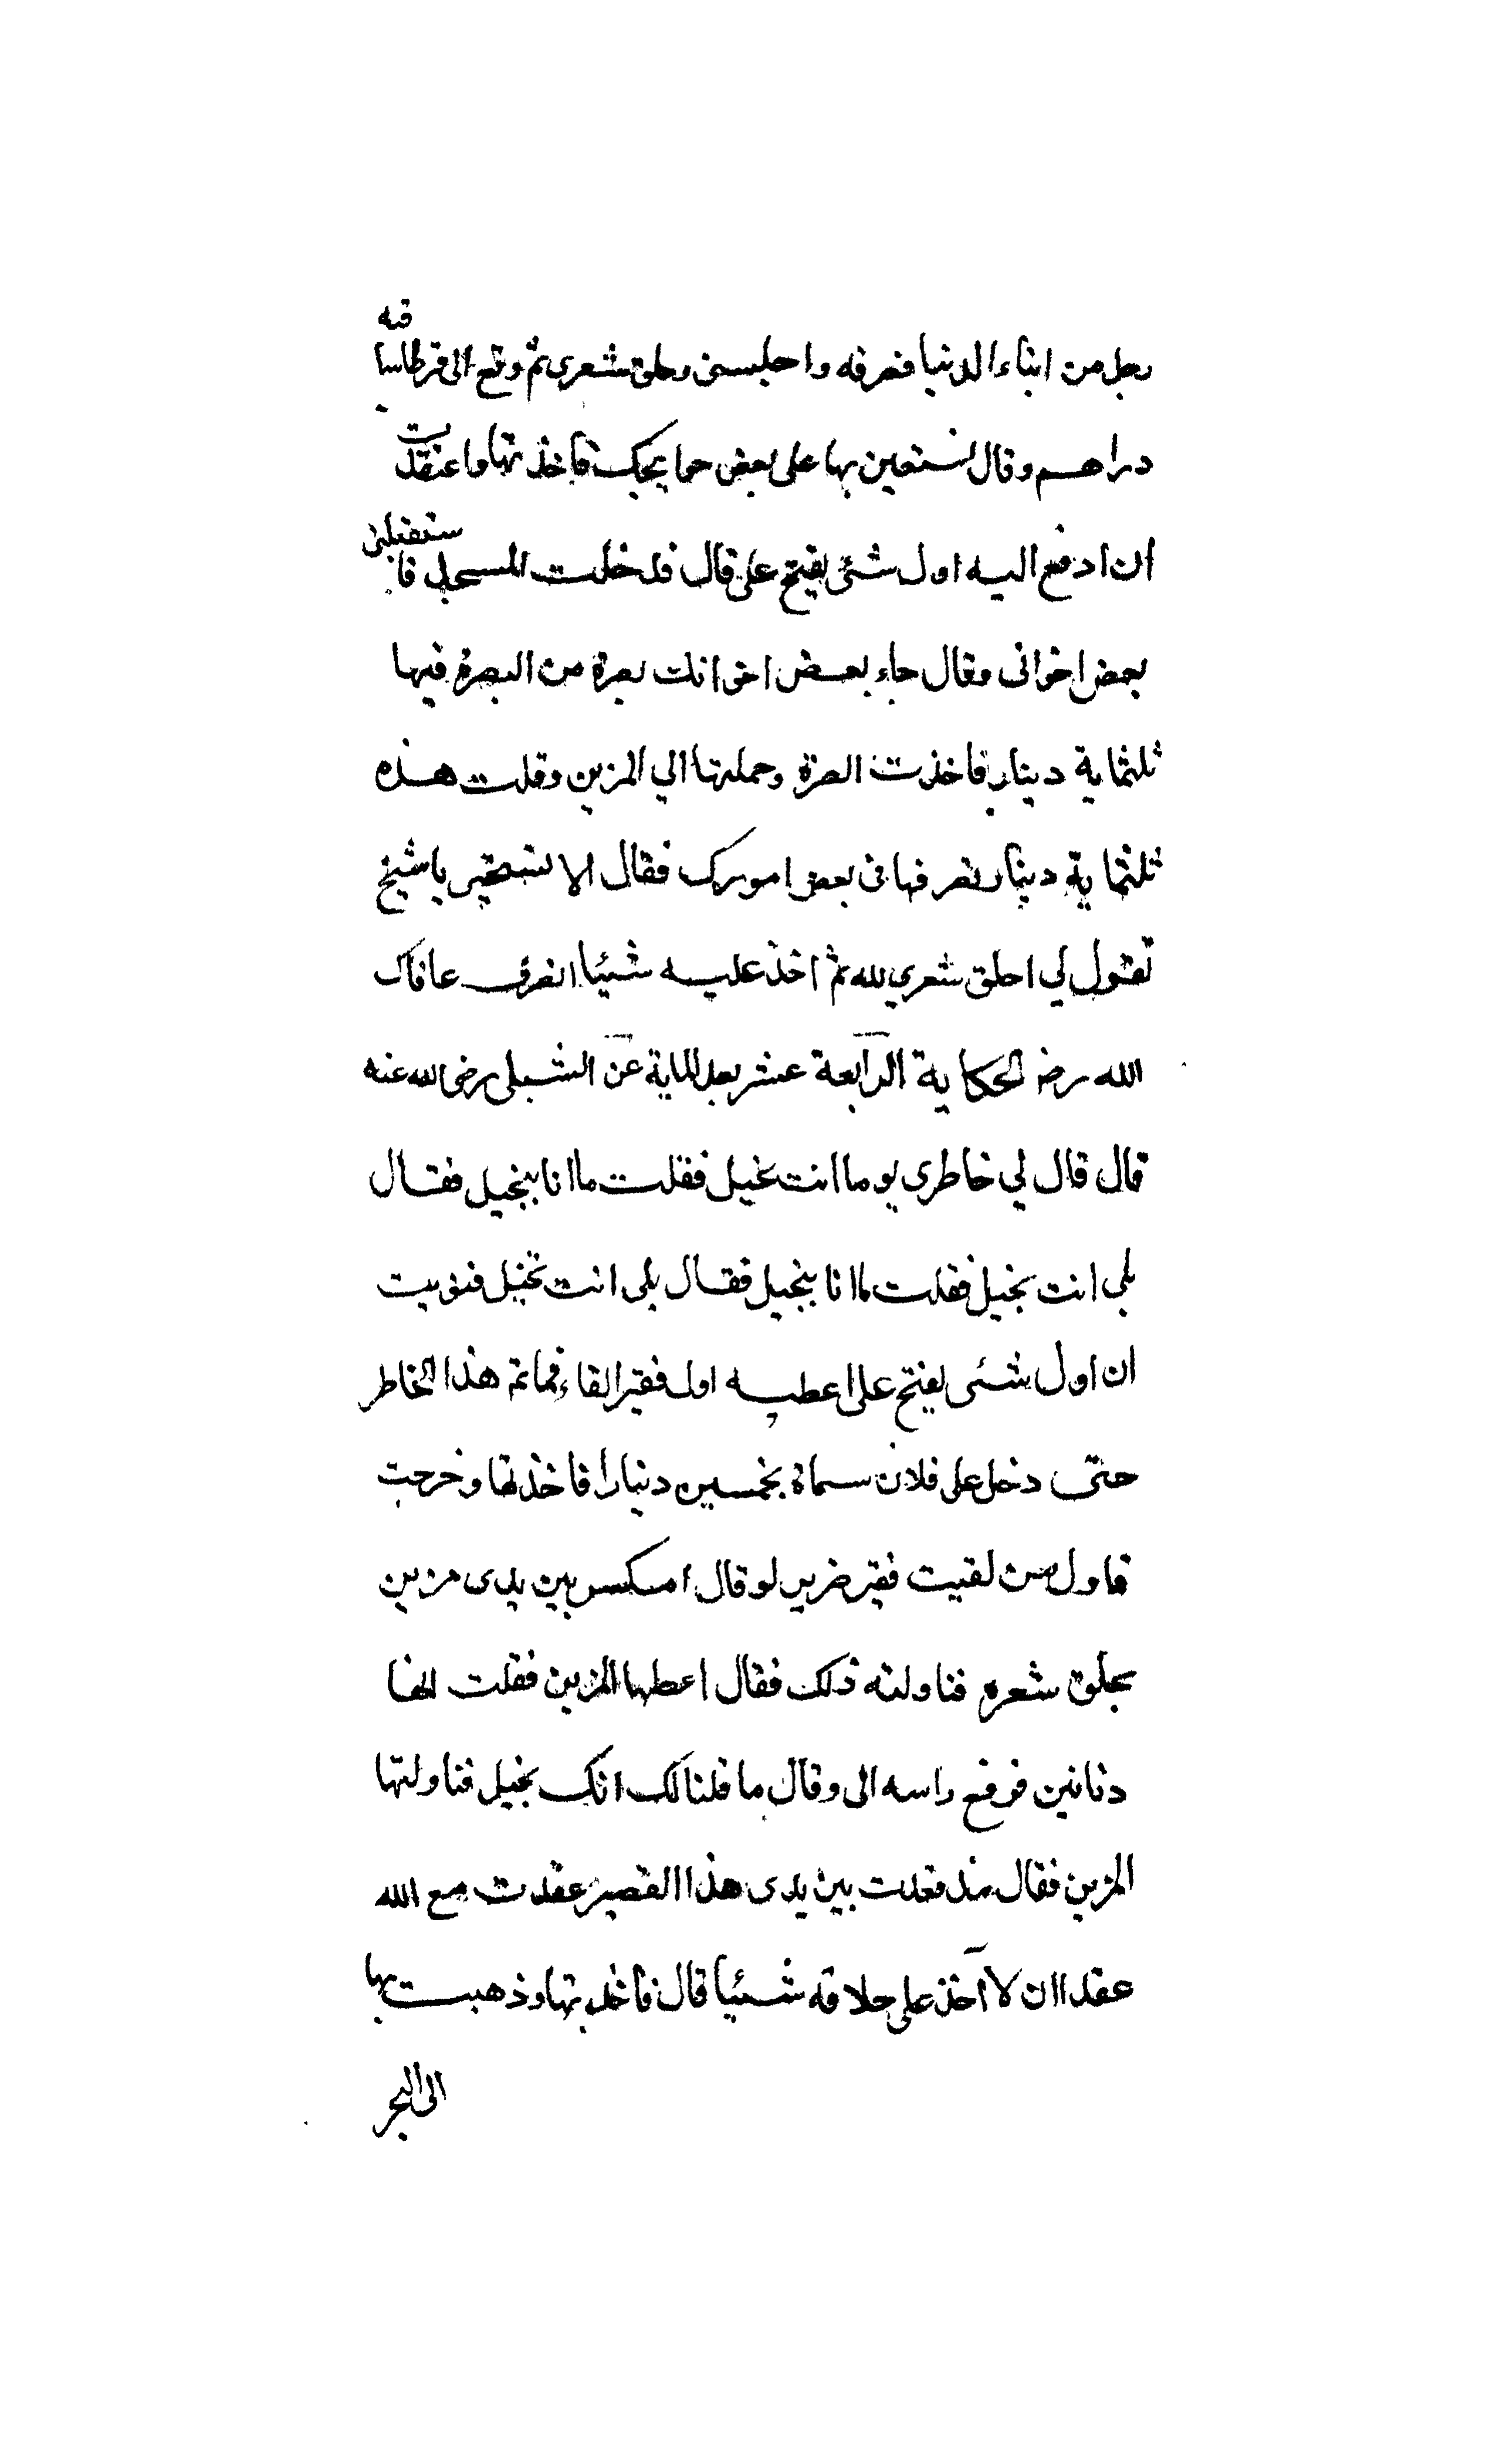 رجل من ابناء الدنيا فصرفه واجلسنى وحلق شعرى ثم دفع الى قرطاسا فيه
دراهم وقال استعين بها على بعض حوايجك فاخذتها واعتقدت
ان ادفع اليه اول شئ يفتح على قال فدخلت المسجد فاستقبلنى
بعض اخوانى وقال جاء بعض اخوانك بصرة من البصرة فيها
ثلثماية دينار فاخذت الصرة وحملتها الي المزين وقلت هذه
ثلثماية دينار تصرفها فى بعض امورك فقال الا تستحيى يا شيخ
تقول لي احلق شعري لله ثم اخذ عليه شيئا انصرف عافاك
الله رضـ الحكاية الرابعة عشر بعد الماية عن الشبلى رضى الله عنه
قال قال لي خاطرى يوما انت بخيل فقلت ما انا ببخيل فقال
بلى انت بخيل فقلت ما انا ببخيل فقال بلى انت بخيل فنويت
ان اول شئى يفتح على اعطيه اول فقير القاه فما تم هذا الخاطر
حتى دخل على فلان سماه بخمسين دينارا فاخذتها وخرجت
فاول من لقيت فقير ضرير بين يدى مزين
يحلق شعره فناولته ذلك فقال اعطها المزين فقلت انها
دنانير فرفع راسه الى وقال ما قلنا لك انك بخيل فناولتها
المزين فقال منذ قعدت بين يدى هذا الفقير عقدت مع الله
عقدا ان لا آخذ على حلاقه شيئا قال فاخذتها وذهبت بها
الى البحر